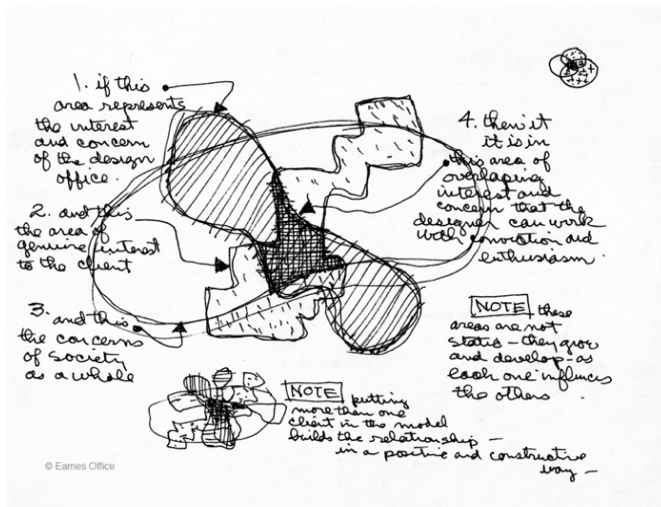 1. if this
area represents
the interest
and concern
of the design
office.
2. and this
the area of
genuine interest
to the client
3. and this
the concerns
of society
as a whole
4. then it
it is in
this area of
overlaping
interest and
concern that the
designer can work
with conviction and
enthusiasm.
NOTE these
areas are not
static - they grow
and develop - as
each one influences
the others.
NOTE putting
more than one
client in the model
builds the relationship -
in a positive and constructive
way -
© Eames Office